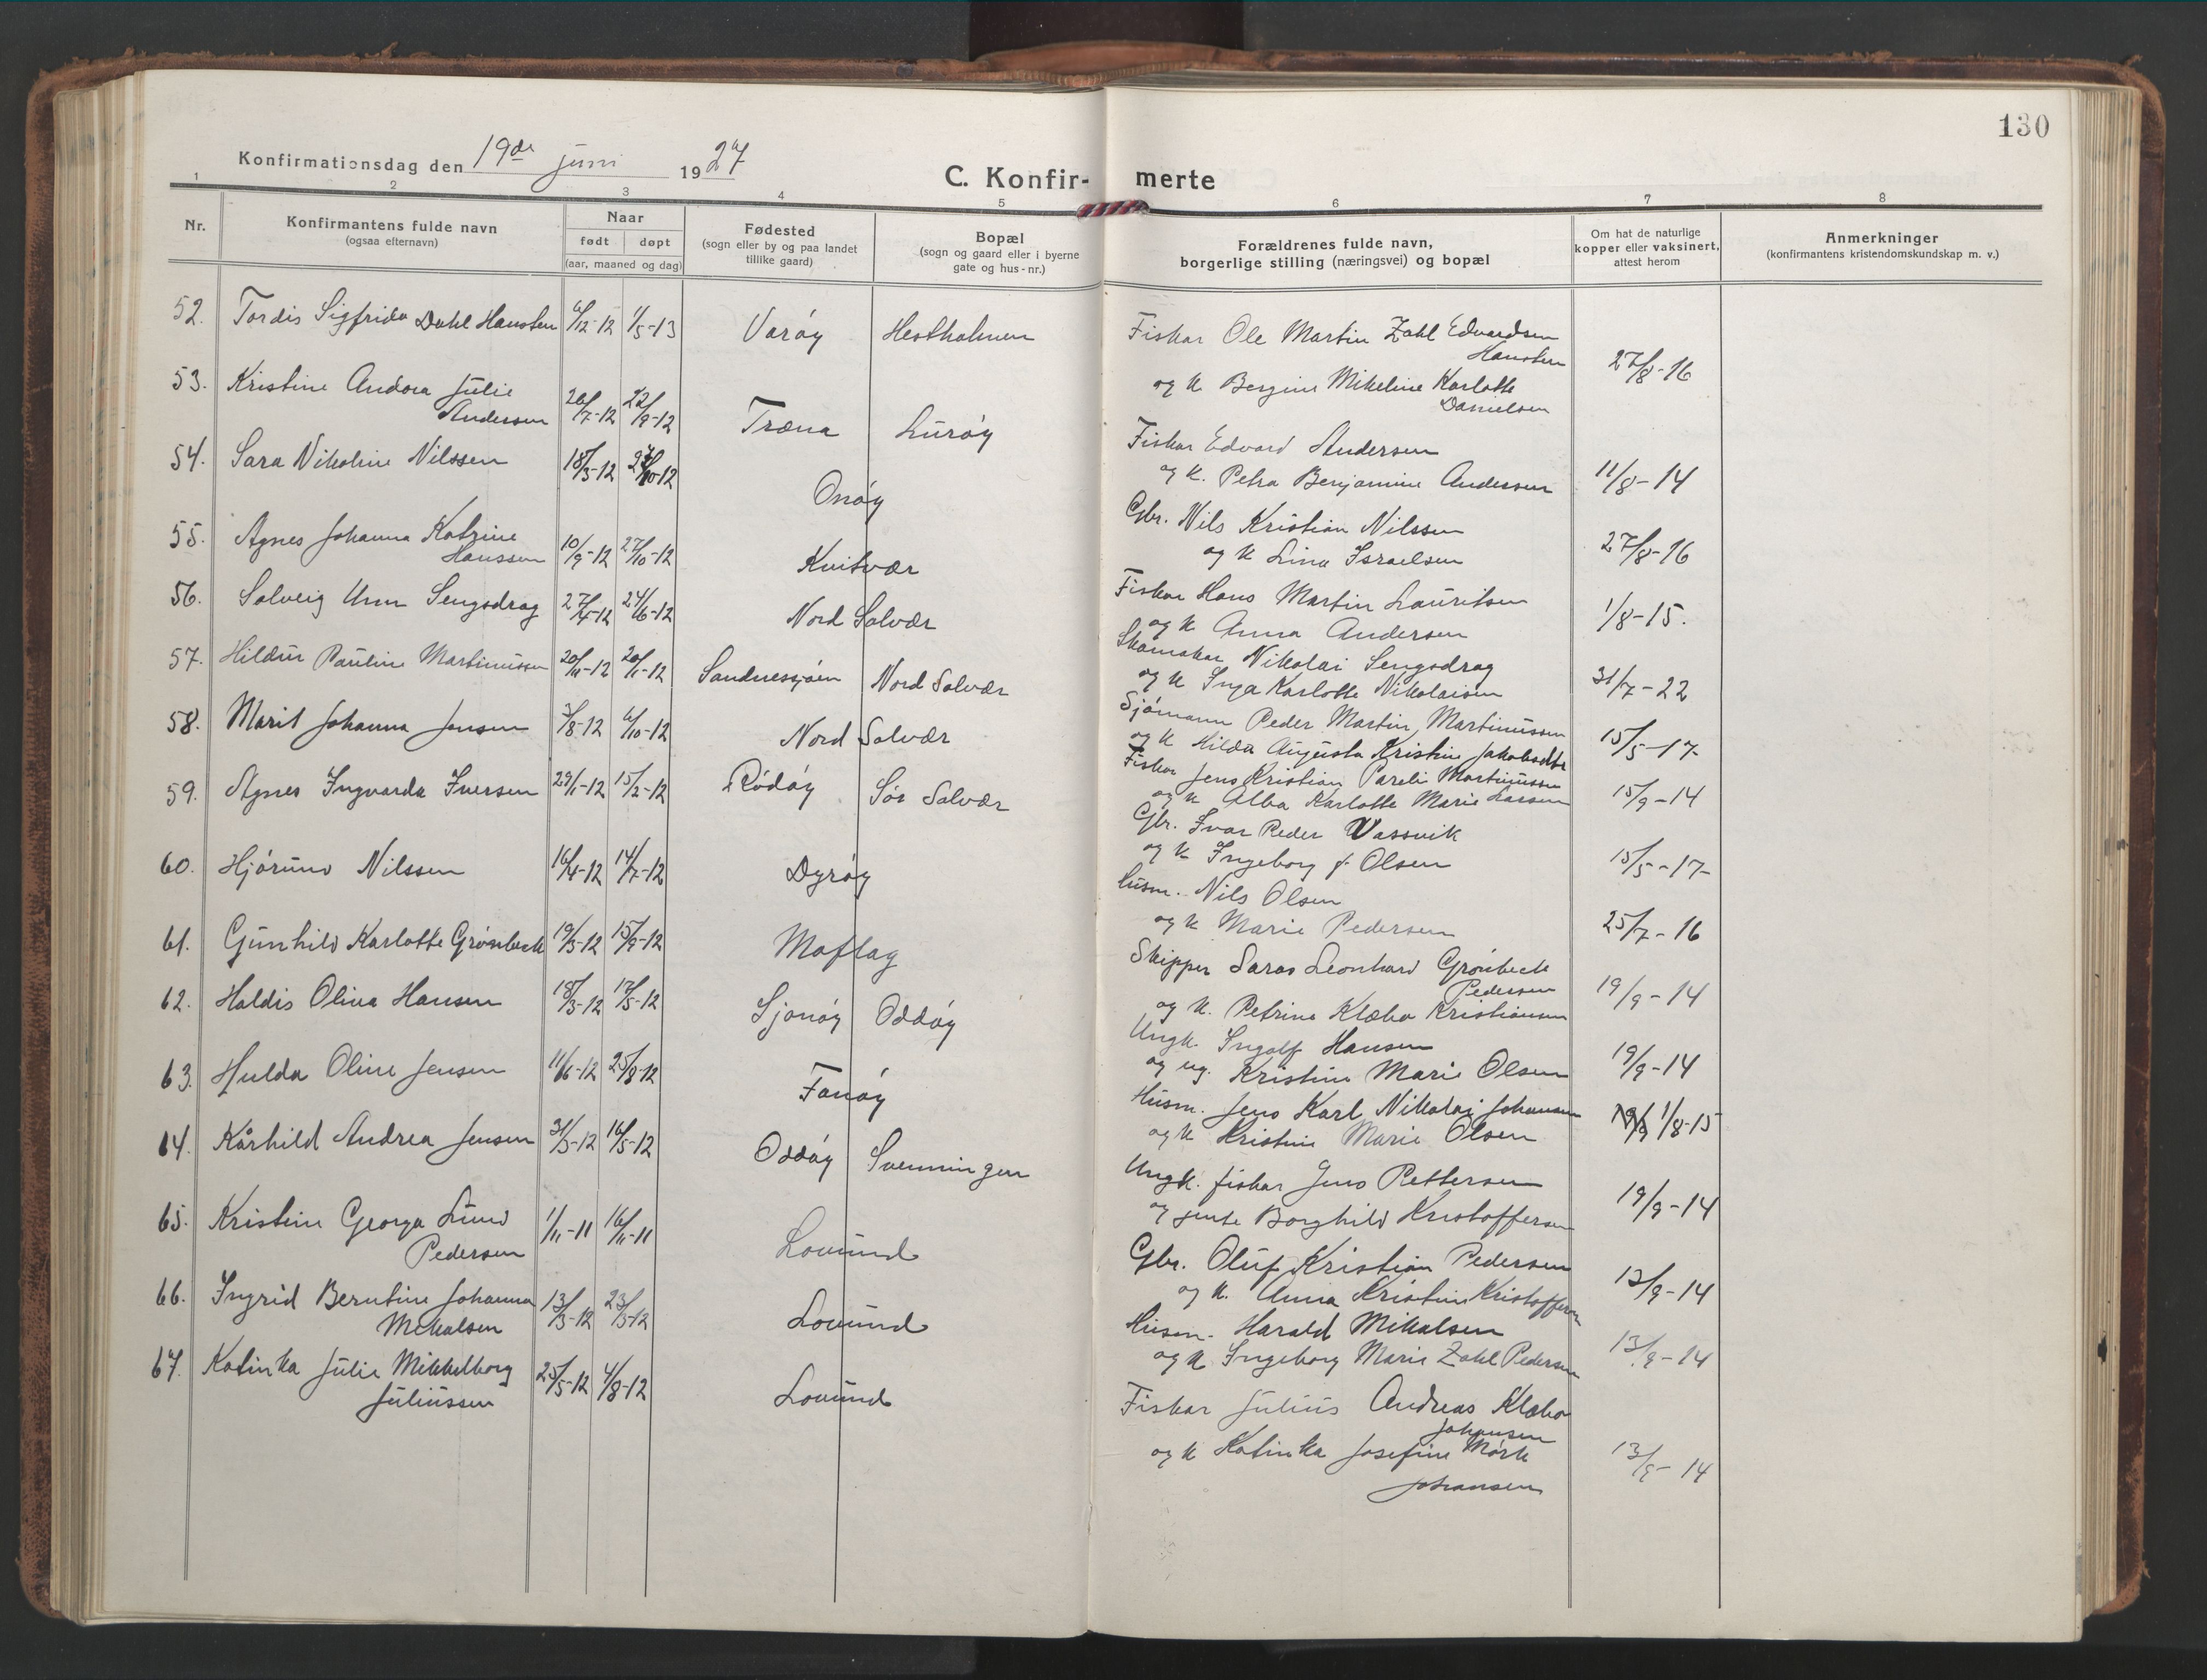 130
Konfirmationsdag den 19de juni 1927
C. Konfir- merte
1 2 3 4 5 6 7 8
Nr.
Konfirmantens fulde navn
(ogsaa efternavn)
Naar
født døpt
(aar, maaned og dag)
Fødested
(sogn eller by og paa landet
tillike gaard)
Bopæl
(sogn og gaard eller i byerne
gate og hus-nr.)
Forældrenes fulde navn,
borgerlige stilling (næringsvei) og bopæl
Om hat de naturlige
kopper eller vaksinert,
attest herom
Anmerkninger
(konfirmantens kristendomskundskap m. v.)
52. Tordis Sigfrida Dahl Hansten 6/12-12 1/5-13 Varøy Hestholmen
Fiskar Ole Martin Zahl Edvardsen
Hansten
og k Bergine Mikeline Karlotte
Danielsen
27/8-16
53. Kristine Andora Julie
Andersen 26/7-12 22/9-12 Træna Lurøy
Fiskar Edvard Andersen
og k. Petra Benjamine Andersen 11/8-14
54. Sara Nikoline Nilssen 18/3-12 27/10-12 Onøy
Gbr. Nils Kristian Nilssen
og k Lina Israelsen 27/8-16
55. Agnes Johanna Katrine
Hanssen 10/9-12 27/10-12 Kvitvær
Fiskar Hans Martin Lauritsen
og k Anna Andersen 1/8-15.
56. Solveig Unn Sengsdrag 27/4-12 24/6-12 Nord Solvær
Skomakar Nikolai Sengsdrag
og k Inga Karlotte Nikolaisen 31/7-22
57. Hildur Pauline Martinussen 20/11-12 20/1-12 Sandnessjøen Nord Solvær
Sjømann Peder Martin Martinussen
og k Hilda Augusta Kristine Jakobsdtr 15/5-17
58. Marit Johanna Jensen 3/8-12 6/10-12 Nord Solvær
Fiskar Jens Kristian Pareli Martinussen
og k Alba Karlotte Marie Larsen 15/9-14
59. Agnes Ingvarda Iversen 29/1-12 15/2-12 Rødøy Sør Solvær
Gbr. Ivar Peder Vassvik
og k Ingeborg f. Olsen 15/5-17
60. Hjørund Nilssen 16/4-12 14/7-12 Dyrøy
Husm. Nils Olsen
og k Marie Pedersen 25/7-16
61. Gunhild Karlotte Grønbeck 19/3-12 15/9-12 Moflag
Skipper Saras Leonhard Grønbeck
Pedersen
og k. Petrine Klæbo Kristiansen 19/9-14
62. Haldis Oliva Hansen 18/3-12 17/5-12 Sjonøy Oddøy
Ungk. Ingolf Hansen
og ug. Kristine Marie Olsen 19/9-14
63. Hulda Oline Jensen 11/6-12 25/8-12 Fanøy
Husm. Jens Karl Nikolai Johansen
og k Kristine Marie Olsen 19/9 1/8-15
64. Kårhild Andrea Jensen 31/3-12 16/5-12 Oddøy Svenningen
Ungk. fiskar Jens Pettersen
og jente Borghild Kristoffersen 19/9-14
65. Kristine Georga Lund
Pedersen 1/11-11 16/11-11 Lovund
Gbr. Oluf Kristian Pedersen
og k. Anna Kristine Kristoffersen 13/9-14
66. Ingrid Berntine Johanna
Mikalsen 13/3-12 23/3-12 Lovund
Husm. Harald Mikalsen
og k Ingeborg Marie Zahl Pedersen 13/9-14
67. Katinka Julie Mikkelborg
Juliussen 25/5-12 4/8-12 Lovund
Fiskar Julius Andreas Klæbo
Johansen
og k Katinka Josefine Mørk
Johansen
13/9-14